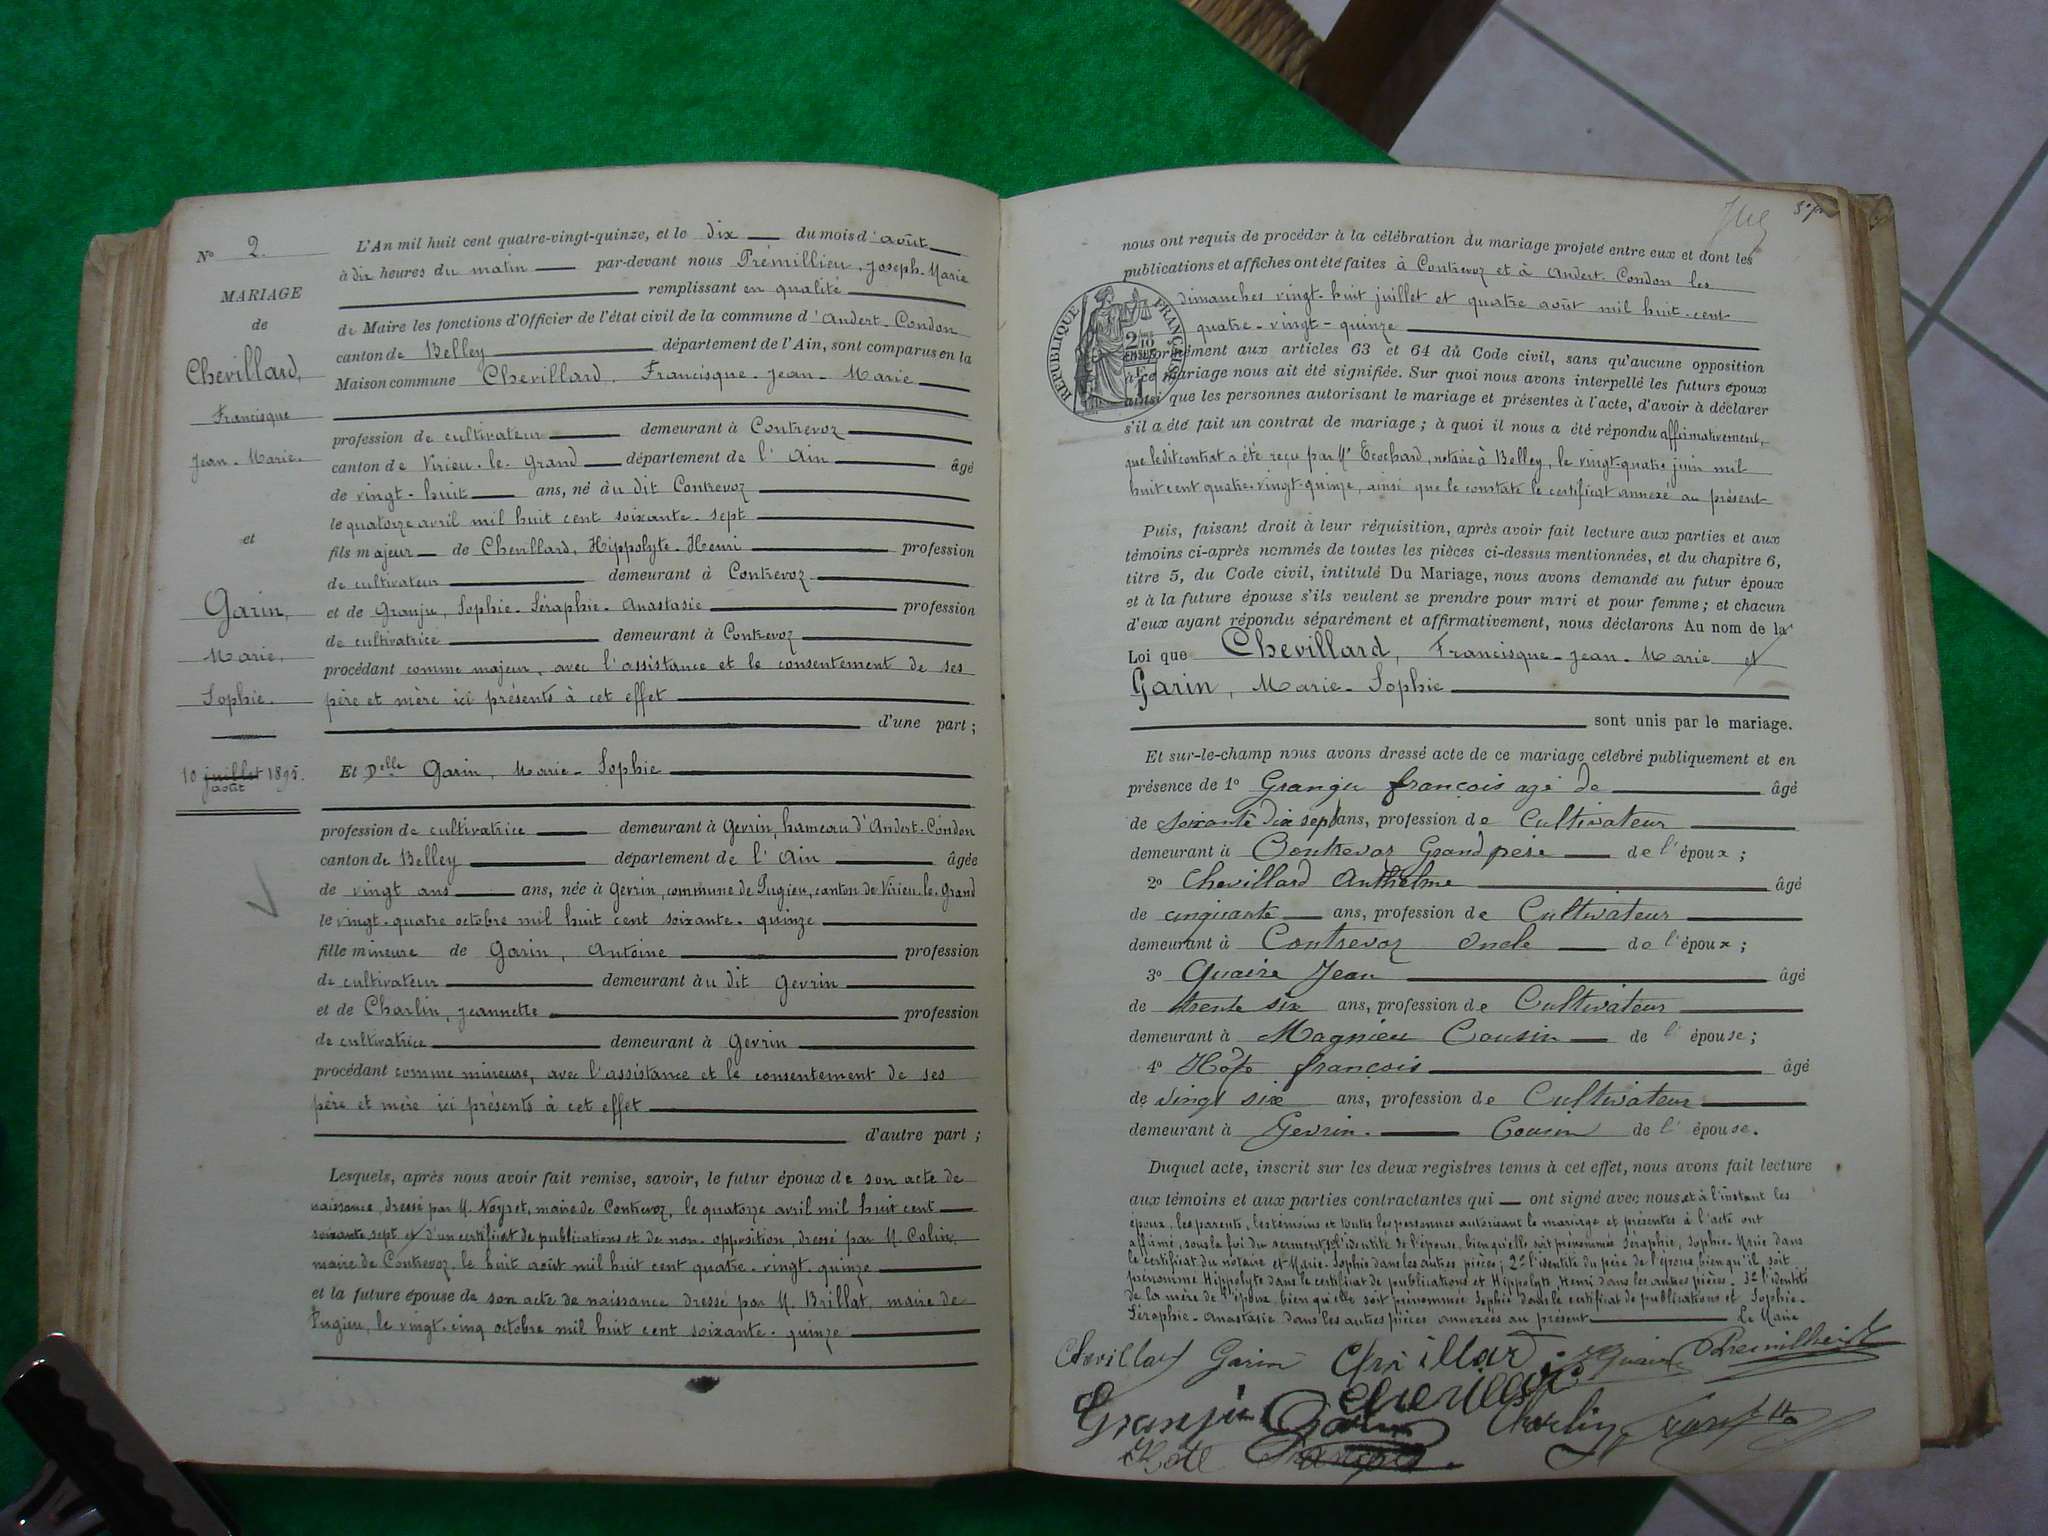 N° 2.
MARIAGE
de
Chevillard,
Francisque
Jean-Marie.
et
Garin,
Marie,
Sophie.
10 juillet 1895.
août
L'An mil huit cent quatre-vingt-quinze, et le dix du mois d'août
à dix heures du matin par-devant nous Prémillieu, Joseph-Marie
remplissant en qualité
de Maire les fonctions d'Officier de l'état civil de la commune d'Andert-Condon
canton de Belley département de l'Ain, sont comparus en la
Maison commune Chevillard, Francisque-Jean-Marie
profession de cultivateur demeurant à Contrevoz
canton de Virieu-le-Grand département de l'Ain âgé
de vingt-huit ans, né au dit Contrevoz
le quatorze avril mil huit cent soixante-sept
fils majeur de Chevillard, Hippolyte-Henri profession
de cultivateur demeurant à Contrevoz
et de Granju, Sophie-Séraphie-Anastasie profession
de cultivatrice demeurant à Contrevoz
procédant comme majeur, avec l'assistance et le consentement de ses
père et mère ici présents à cet effet
d'une part;
Et Delle Garin, Marie-Sophie
profession de cultivatrice demeurant à Gevrin, hameau d'Andert-Condon
canton de Belley département de l'Ain âgée
de vingt ans ans, née à Gevrin, commune de Pugieu, canton de Virieu-le-Grand
le vingt-quatre octobre mil huit cent soixante-quinze
fille mineure de Garin, Antoine profession
de cultivateur demeurant au dit Gevrin
et de Charlin, Jeannette profession
de cultivatrice demeurant à Gevrin
procédant comme mineure, avec l'assistance et le consentement de ses
père et mère ici présents à cet effet
d'autre part;
Lesquels, après nous avoir fait remise, savoir, le futur époux de son acte de
naissance, dressé par M. Noyret, maire de Contrevoz, le quatorze avril mil huit cent
soixante sept et d'un certificat de publications et de non-opposition, dressé par M. Colin,
maire de Contrevoz, le huit août mil huit cent quatre-vingt-quinze
et la future épouse de son acte de naissance dressé par M. Brillat, maire de
Pugieu, le vingt-cinq octobre mil huit cent soixante-quinze
nous ont requis de procéder à la célébration du mariage projeté entre eux et dont les
publications et affiches ont été faites à Contrevoz et à Andert-Condon les
dimanches vingt-huit juillet et quatre août mil huit-cent
quatre-vingt-quinze
RÉPUBLIQUE FRANÇAISE
conformément aux articles 63 et 64 du Code civil, sans qu'aucune opposition
à ce mariage nous ait été signifiée. Sur quoi nous avons interpellé les futurs époux
ainsi que les personnes autorisant le mariage et présentes à l'acte, d'avoir à déclarer
s'il a été fait un contrat de mariage; à quoi il nous a été répondu affirmativement,
que le dit contrat a été reçu par Me Trochard, notaire à Belley, le vingt-quatre juin mil
huit cent quatre-vingt-quinze, ainsi que le constate le certificat annexé au présent
Puis, faisant droit à leur réquisition, après avoir fait lecture aux parties et aux
témoins ci-après nommés de toutes les pièces ci-dessus mentionnées, et du chapitre 6,
titre 5, du Code civil, intitulé Du Mariage, nous avons demandé au futur époux
et à la future épouse s'ils veulent se prendre pour mari et pour femme; et chacun
d'eux ayant répondu séparément et affirmativement, nous déclarons Au nom de la
Loi que Chevillard, Francisque-Jean-Marie et
Garin, Marie-Sophie
sont unis par le mariage.
Et sur-le-champ nous avons dressé acte de ce mariage célébré publiquement et en
présence de 1° Granju françois agé de âgé
de soixante dix sept ans, profession de Cultivateur
demeurant à Contrevoz Grand père de l'époux;
2° Chevillard Anthelme âgé
de cinquante ans, profession de Cultivateur
demeurant à Contrevoz Oncle de l'époux;
3° Quaire Jean âgé
de trente six ans, profession de Cultivateur
demeurant à Magnieu Cousin de l'épouse;
4° Hôte françois âgé
de vingt six ans, profession de Cultivateur
demeurant à Gevrin. Cousin de l'épouse.
Duquel acte, inscrit sur les deux registres tenus à cet effet, nous avons fait lecture
aux témoins et aux parties contractantes qui ont signé avec nous et à l'instant les
époux, les parents, les témoins et toutes les personnes autorisant le mariage et présentes à l'acte ont
affirmé, sous la foi du serment, 1° l'identité de l'épouse, bien qu'elle soit prénommée Séraphie, Sophie-Marie dans
le certificat du notaire et Marie-Sophie dans les autres pièces; 2° l'identité du père de l'époux, bien qu'il soit
prénommé Hippolyte dans le certificat de publications et Hippolyte Henri dans les autres pièces. 3° l'identité
de la mère de l'époux, bien qu'elle soit prénommée Sophie dans le certificat de publications et Sophie-
Séraphie-Anastasie dans les autres pièces annexées au présent Le Maire
Chevillard Garin Chevillard Quaire Premillieu
Granju Garin Chevillard Charlin
Hôte François